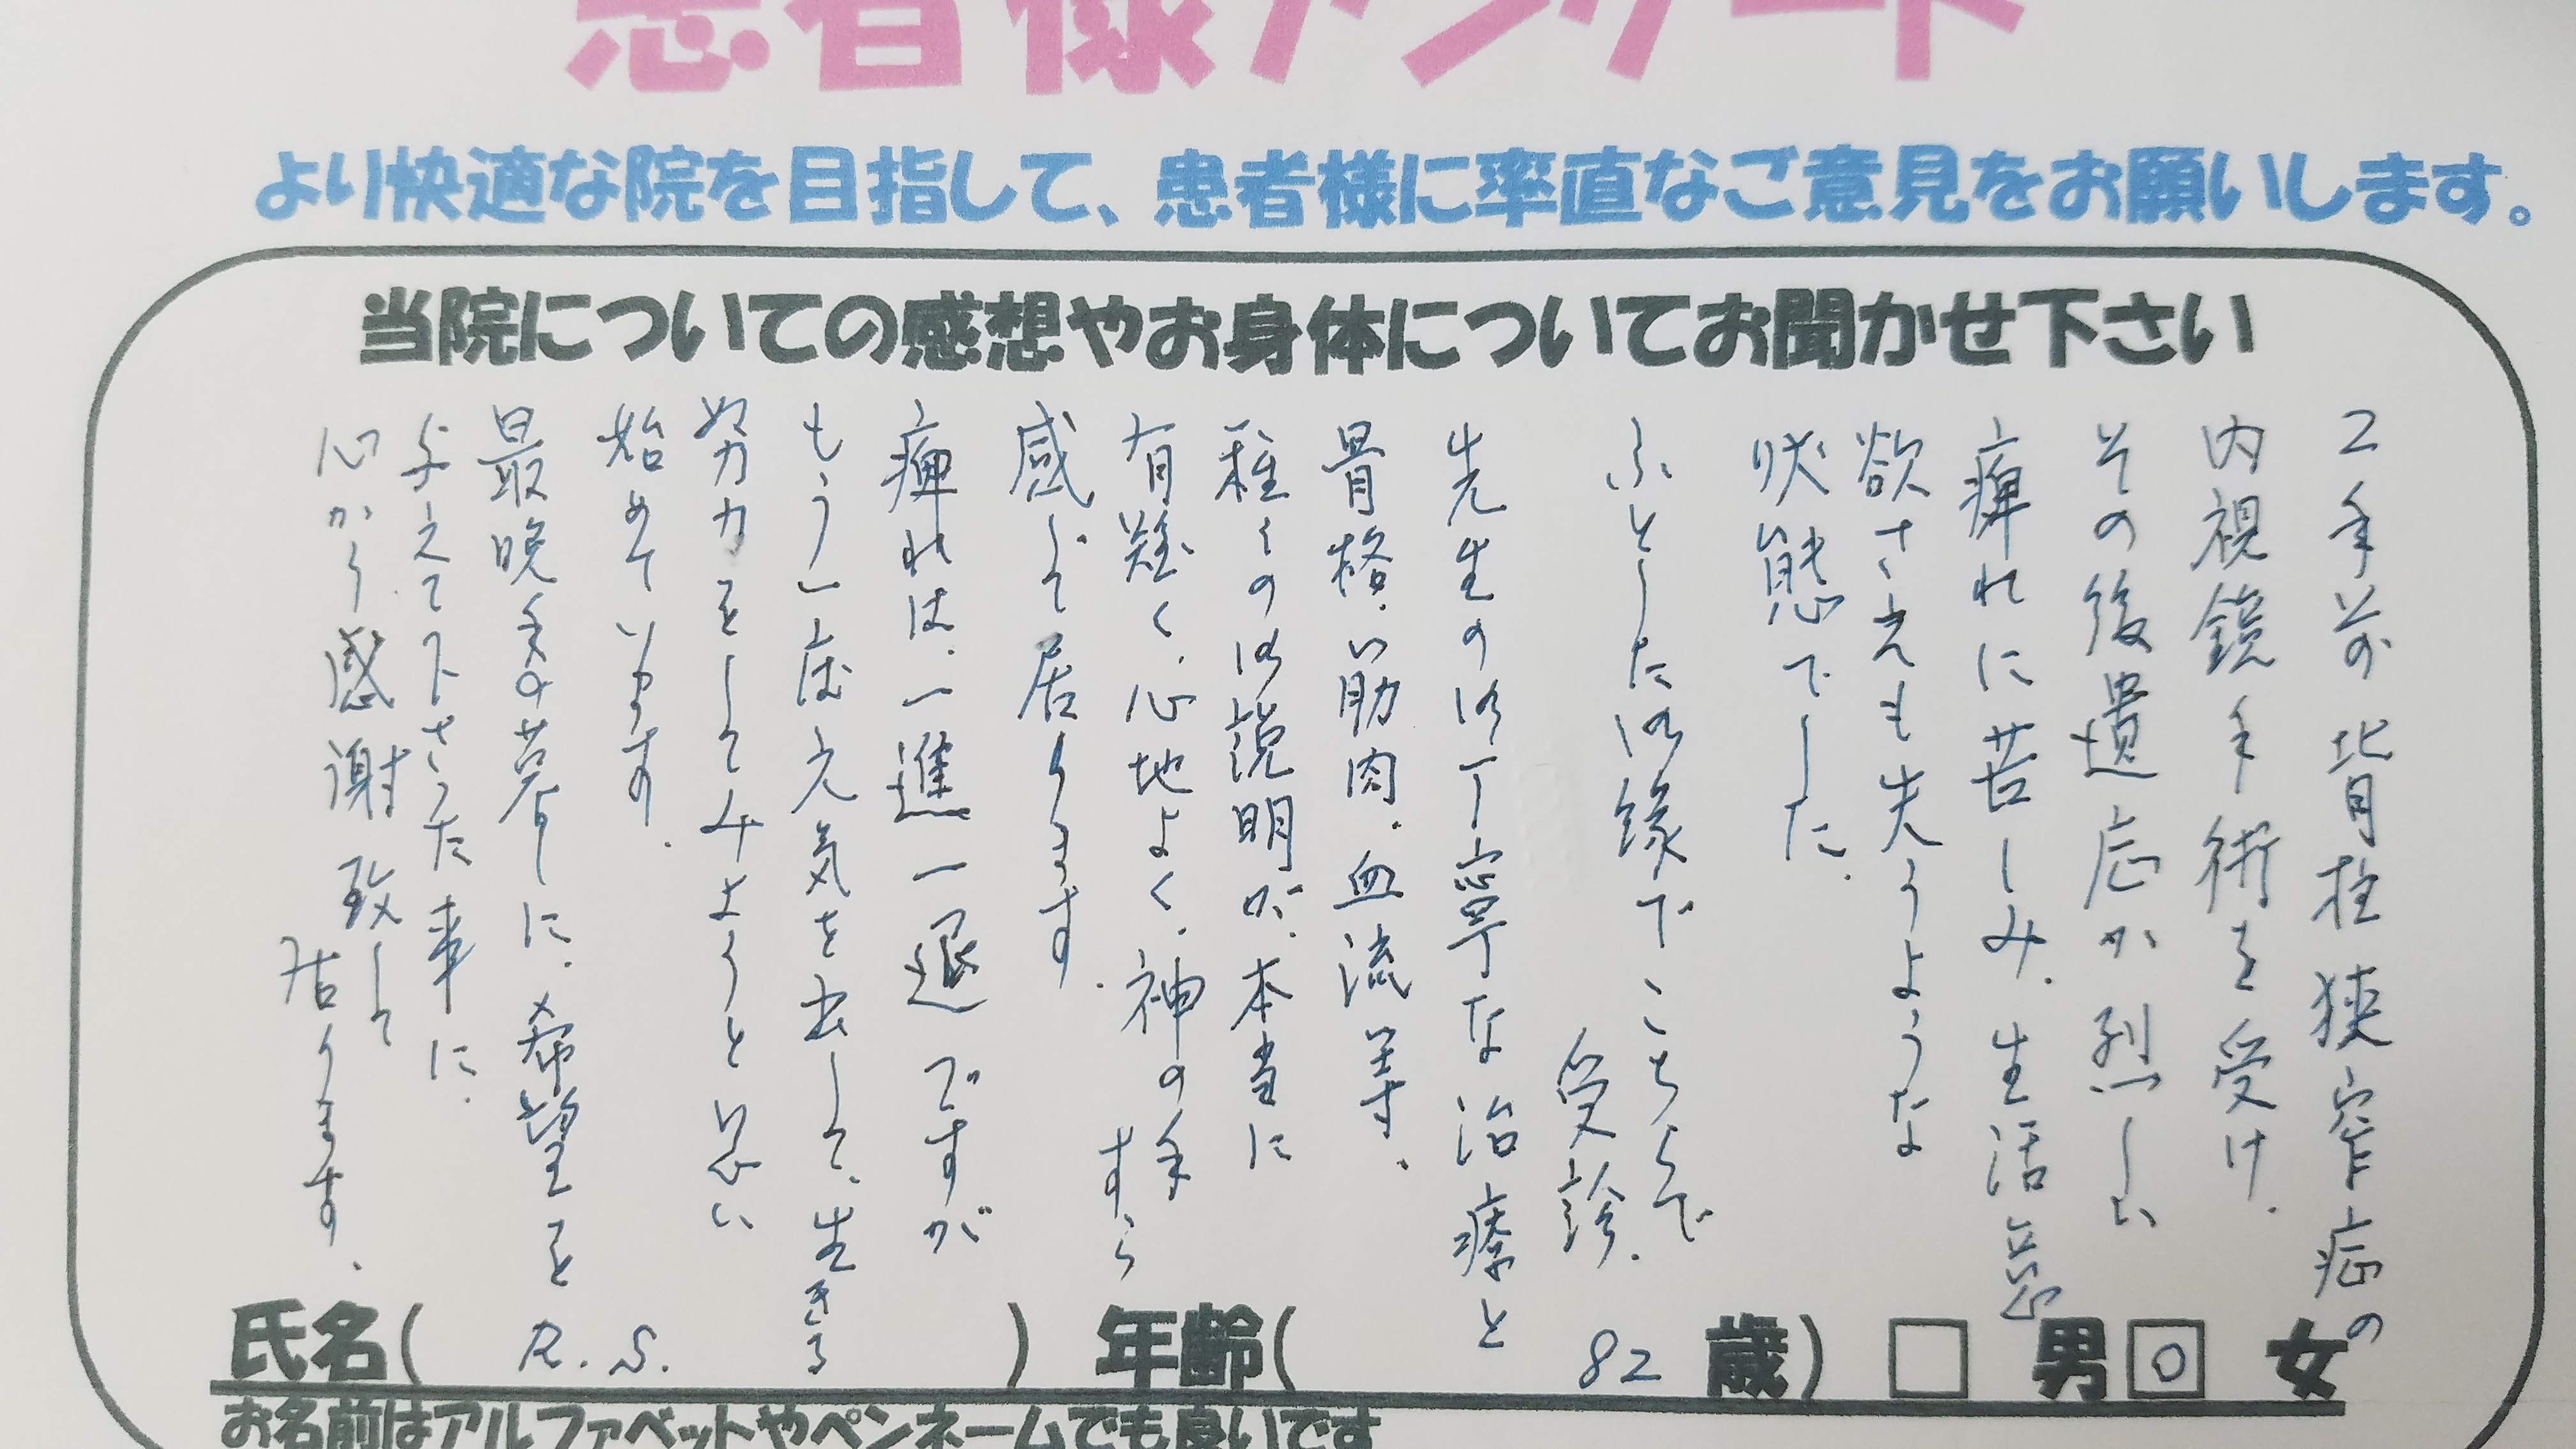 患者様アンケート
より快適な院を目指して、患者様に率直なご意見をお願いします。
当院についての感想やお身体についてお聞かせ下さい
2年前の背柱狭窄症の
内視鏡手術を受け、
その後遺症か烈しい
痺れに苦しみ、生活意
欲さえも失うような
状態でした。
ふとした御縁でこちらで
受診、
先生の御丁寧な治療と
骨格、筋肉、血流等、
種々の御説明が、本当に
有難く、心地よく、神の手すら
感じて居ります。
痺れは、一進一退ですが
もう一度元気を出して、生きる
努力をしてみようと思い
始めています。
最晩年の暮しに、希望を
与えて下さった事に、
心から感謝致して
居ります。
氏名( R. S. ) 年齢( 82 歳) □ 男 ☐0 女
お名前はアルファベットやペンネームでも良いです